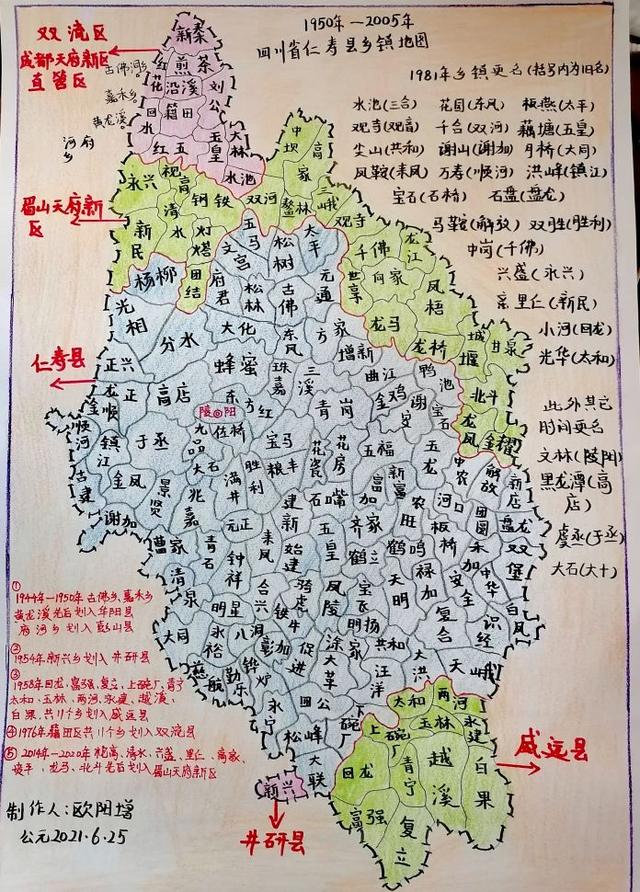 1950年—2005年
四川省仁寿县乡镇地图
1981年乡镇更名(括号内为旧名)
水池(三合) 花园(东风) 板燕(太平)
观寺(观音) 千合(双河) 藕塘(五皇)
尖山(共和) 谢山(谢加) 月桥(大同)
凤鞍(来凤) 万寿(顺河) 洪峰(镇江)
宝石(石桥) 石盘(盘龙)
马鞍(解放) 双胜(胜利)
中岗(千佛)
兴盛(永兴)
里仁(新民)
小河(回龙)
光华(太和)
此外其它
时间更名
文林(陵阳)
黑龙潭(高店)
虞丞(于丞)
大石(大十)
双流区
成都天府新区
直管区
古佛洞
嘉禾乡
黄龙溪
府河乡
眉山天府新区
仁寿县
威远县
井研县
新秦
红花
煎茶
沿溪
刘公
籍田
回水
玉皇
大林
红五
水池
中坝
高家
永兴
视高
清水
钢铁
双河
鳌林
三峨
观寺
新民
灯塔
团结
千佛
龙江
向家
世享
凤梧
龙马
龙桥
城堰
甘泉
北斗
龙凤
金耀
杨柳
五马
文宫
松树
太平
光相
府君
松林
古佛
元通
分水
大化
东风
方家
正兴
蜂蜜
珠嘉
三溪
增新
曲江
鸭池
龙正
高店
东方红
陵阳
青岗
金鸡
谢安
宝石
金顺
顺河
镇江
于丞
九品
佐桥
宝马
花瓷
花房
五福
五龙
中农
解放
新店
古建
金凤
景贤
大石
兆嘉
满井
胜利
粮丰
石嘴
富加
新富
农旺
河口
团圆
盘龙
谢加
曹家
青石
元正
来凤
建新
玉皇
齐家
板桥
永加
双堡
清泉
钟祥
始建
鹤立
鹤鸣
中华
合兴
骑虎
凤陵
宝飞
天明
禄加
安全
白凤
大同
明星
铁牛
明扬
复合
识经
永裕
八洞
彰加
促进
涂家
共和
大洪
天峨
慈航
勤乐
铧炉
大革
汪洋
永宁
回公
下碗厂
松峰
大联
新兴
太和
两河
上碗厂
玉林
永建
回龙
青宁
越溪
白果
富强
复立
①
1944年—1950年古佛乡、嘉禾乡
黄龙溪先后划入华阳县
府河乡划入彭山县
②
1954年新兴乡划入井研县
③
1958年回龙、富强、复立、上碗厂、青宁
太和、玉林、两河、永建、越溪、
白果、共11个乡划入威远县
④1976年籍田区共11个乡划入双流县
⑤2014年—2020年视高、清水、兴盛、里仁、高家、
龙马、北斗先后划入眉山天府新区
制作人:欧阳增
公元2021.6.25